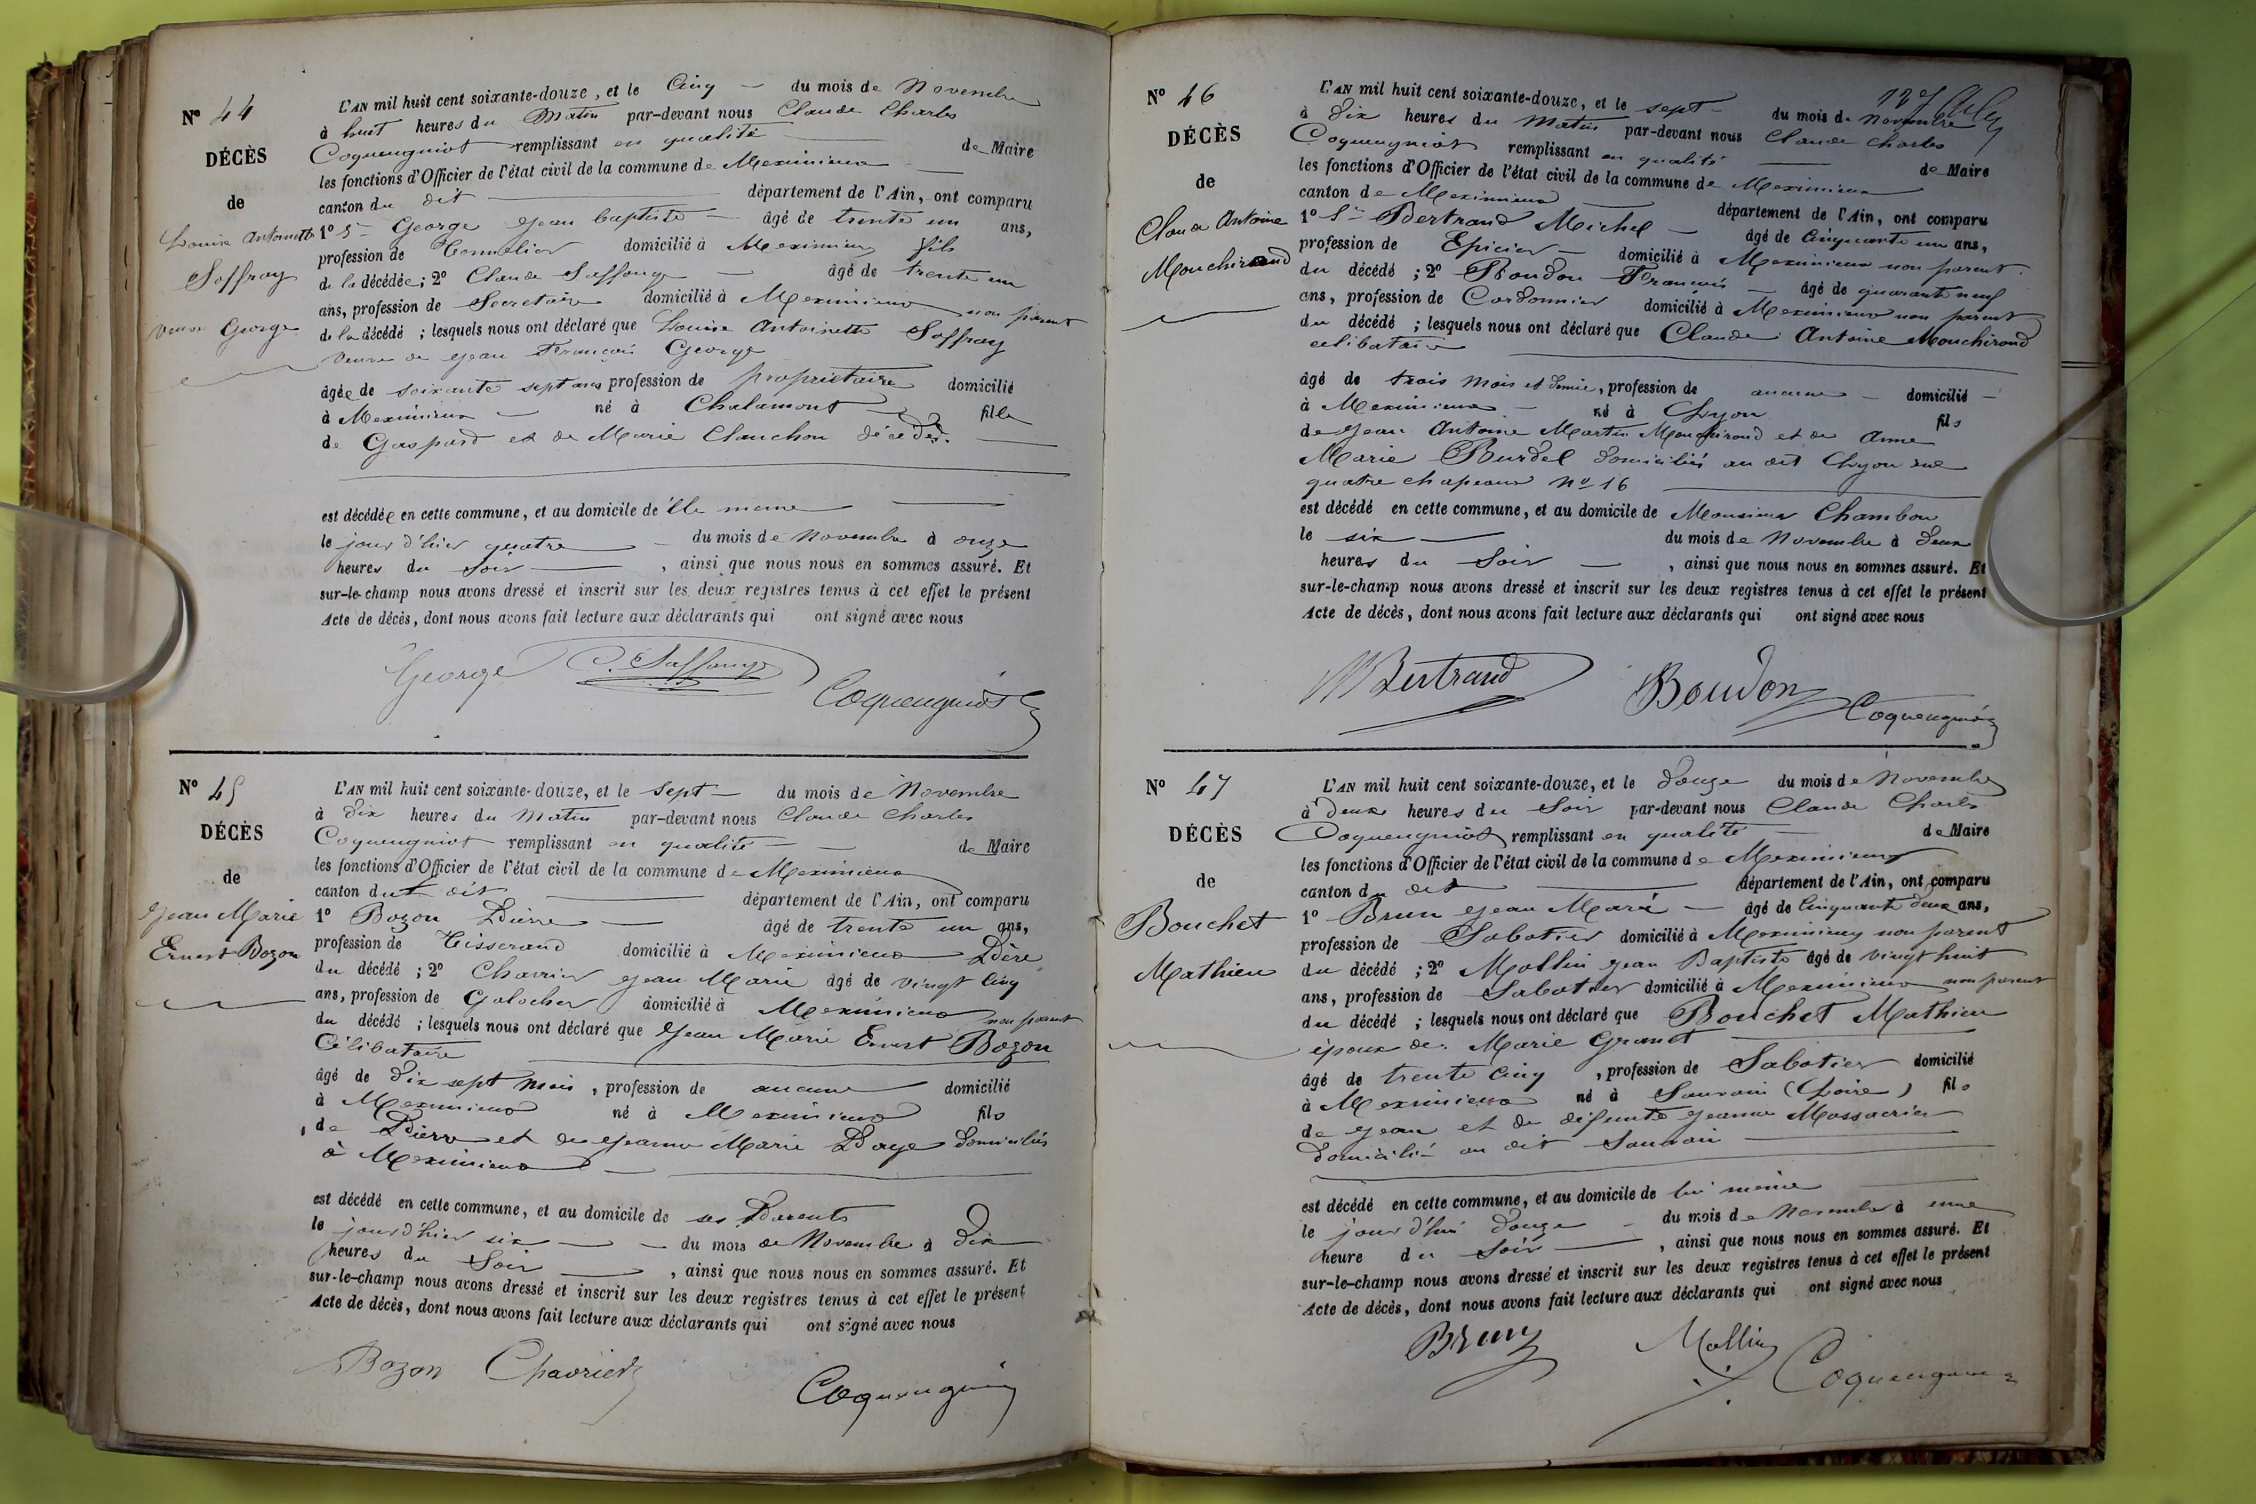 N° 44
DÉCÈS
de
Louise Antoinette
Soffray
veuve George
L'AN mil huit cent soixante-douze, et le Cinq du mois de Novembre
à huit heures du Matin par-devant nous Claude Charles
Coquengniot remplissant en qualité de Maire
les fonctions d'Officier de l'état civil de la commune de Meximieux
canton du dit département de l'Ain, ont comparu
1° Sr George Jean Baptiste âgé de trente un ans,
profession de Tonnelier domicilié à Meximieux fils
de la décédée; 2° Claude âgé de trente un
ans, profession de Secretaire domicilié à Meximieux non parent
de la décédé ; lesquels nous ont déclaré que Louise Antoinette Soffray
Veuve de Jean François George
âgée de soixante sept ans profession de propriétaire domicilié
à Meximieux né à Chalamont fille
de Gaspard et de Marie Clauchon décédés.
est décédée en cette commune, et au domicile de Elle meme
le jour d'hier quatre du mois de Novembre à onze
heures du Soir , ainsi que nous nous en sommes assuré. Et
sur-le-champ nous avons dressé et inscrit sur les deux registres tenus à cet effet le présent
Acte de décès, dont nous avons fait lecture aux déclarants qui ont signé avec nous
George Coquengniot
N° 45
DÉCÈS
de
Jean Marie
Ernest Bozon
L'AN mil huit cent soixante-douze, et le Sept du mois de Novembre
à Dix heures du Matin par-devant nous Claude Charles
Coquengniot remplissant en qualité de Maire
les fonctions d'Officier de l'état civil de la commune de Meximieux
canton du dit département de l'Ain, ont comparu
1° Bozon Pierre âgé de trente un ans,
profession de Tisserand domicilié à Meximieux Père
du décédé ; 2° Chavrier Jean Marie âgé de vingt cinq
ans, profession de Galocher domicilié à Meximieux non parent
du décédé ; lesquels nous ont déclaré que Jean Marie Ernest Bozon
Célibataire
âgé de Dix sept mois , profession de aucune domicilié
à Meximieux né à Meximieux fils
de Pierre et de Jeanne Marie Page domiciliés
à Meximieux
est décédé en cette commune, et au domicile de ses Parents
le jour d'hier six du mois de Novembre à Dix
heures du Soir , ainsi que nous nous en sommes assuré. Et
sur-le-champ nous avons dressé et inscrit sur les deux registres tenus à cet effet le présent
Acte de décès, dont nous avons fait lecture aux déclarants qui ont signé avec nous
Bozon Chavrier Coquengniot
127
N° 46
DÉCÈS
de
Claude Antoine
Mouchiroud
L'AN mil huit cent soixante-douze, et le sept du mois de Novembre
à Dix heures du Matin par-devant nous Claude Charles
Coquengniot remplissant en qualité de Maire
les fonctions d'Officier de l'état civil de la commune de Meximieux
canton de Meximieux département de l'Ain, ont comparu
1° Sr Bertrand Michel âgé de Cinquante un ans,
profession de Epicier domicilié à Meximieux non parent
du décédé ; 2° Boudon François âgé de quarante neuf
ans, profession de Cordonnier domicilié à Meximieux non parent
du décédé ; lesquels nous ont déclaré que Claude Antoine Mouchiroud
célibataire
âgé de trois Mois et demie, profession de aucune domicilié
à Meximieux né à Lyon fils
de Jean Antoine Martin Mouchiroud et de Anne
Marie Burdel domiciliés au dit Lyon rue
quatre chapeaux N° 16
est décédé en cette commune, et au domicile de Monsieur Chambon
le six du mois de Novembre à Deux
heures du Soir , ainsi que nous nous en sommes assuré. Et
sur-le-champ nous avons dressé et inscrit sur les deux registres tenus à cet effet le présent
Acte de décès, dont nous avons fait lecture aux déclarants qui ont signé avec nous
M Bertrand Boudon Coquengniot
N° 47
DÉCÈS
de
Bouchet
Mathieu
L'AN mil huit cent soixante-douze, et le Douze du mois de Novembre
à Deux heures du Soir par-devant nous Claude Charles
Coquengniot remplissant en qualité de Maire
les fonctions d'Officier de l'état civil de la commune de Meximieux
canton du dit département de l'Ain, ont comparu
1° Brun Jean Marie âgé de Cinquante deux ans,
profession de Sabotier domicilié à Meximieux non parent
du décédé ; 2° Mollin Jean Baptiste âgé de vingt huit
ans, profession de Sabotier domicilié à Meximieux non parent
du décédé ; lesquels nous ont déclaré que Bouchet Mathieu
époux de Marie Granet
âgé de trente cinq , profession de Sabotier domicilié
à Meximieux né à Sauvain (Loire) fils
de Jean et de défunte Jeanne
domicilié au dit Sauvain
est décédé en cette commune, et au domicile de lui même
le jour d'hui Douze du mois de Novembre à une
heure du Soir , ainsi que nous nous en sommes assuré. Et
sur-le-champ nous avons dressé et inscrit sur les deux registres tenus à cet effet le présent
Acte de décès, dont nous avons fait lecture aux déclarants qui ont signé avec nous
Brun Mollin Coquengniot